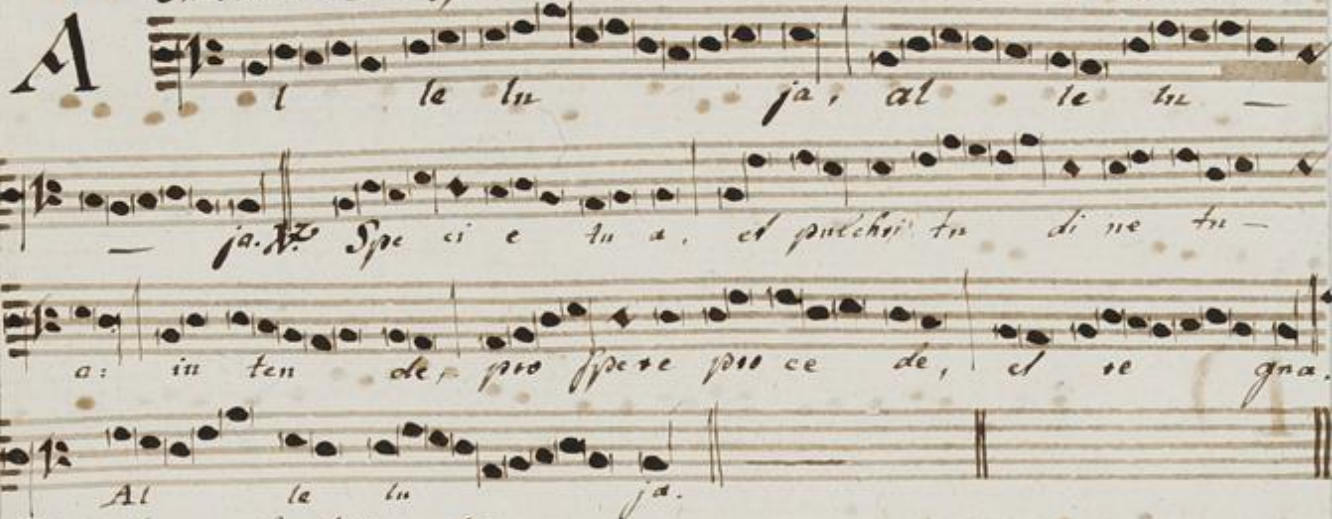 A l le lu ja, al le lu —
— ja. ℣. Spe ci e tu a, et pulchri tu di ne tu —
a: in ten de, pro spere pro ce de, et re gna.
Al le lu ja.